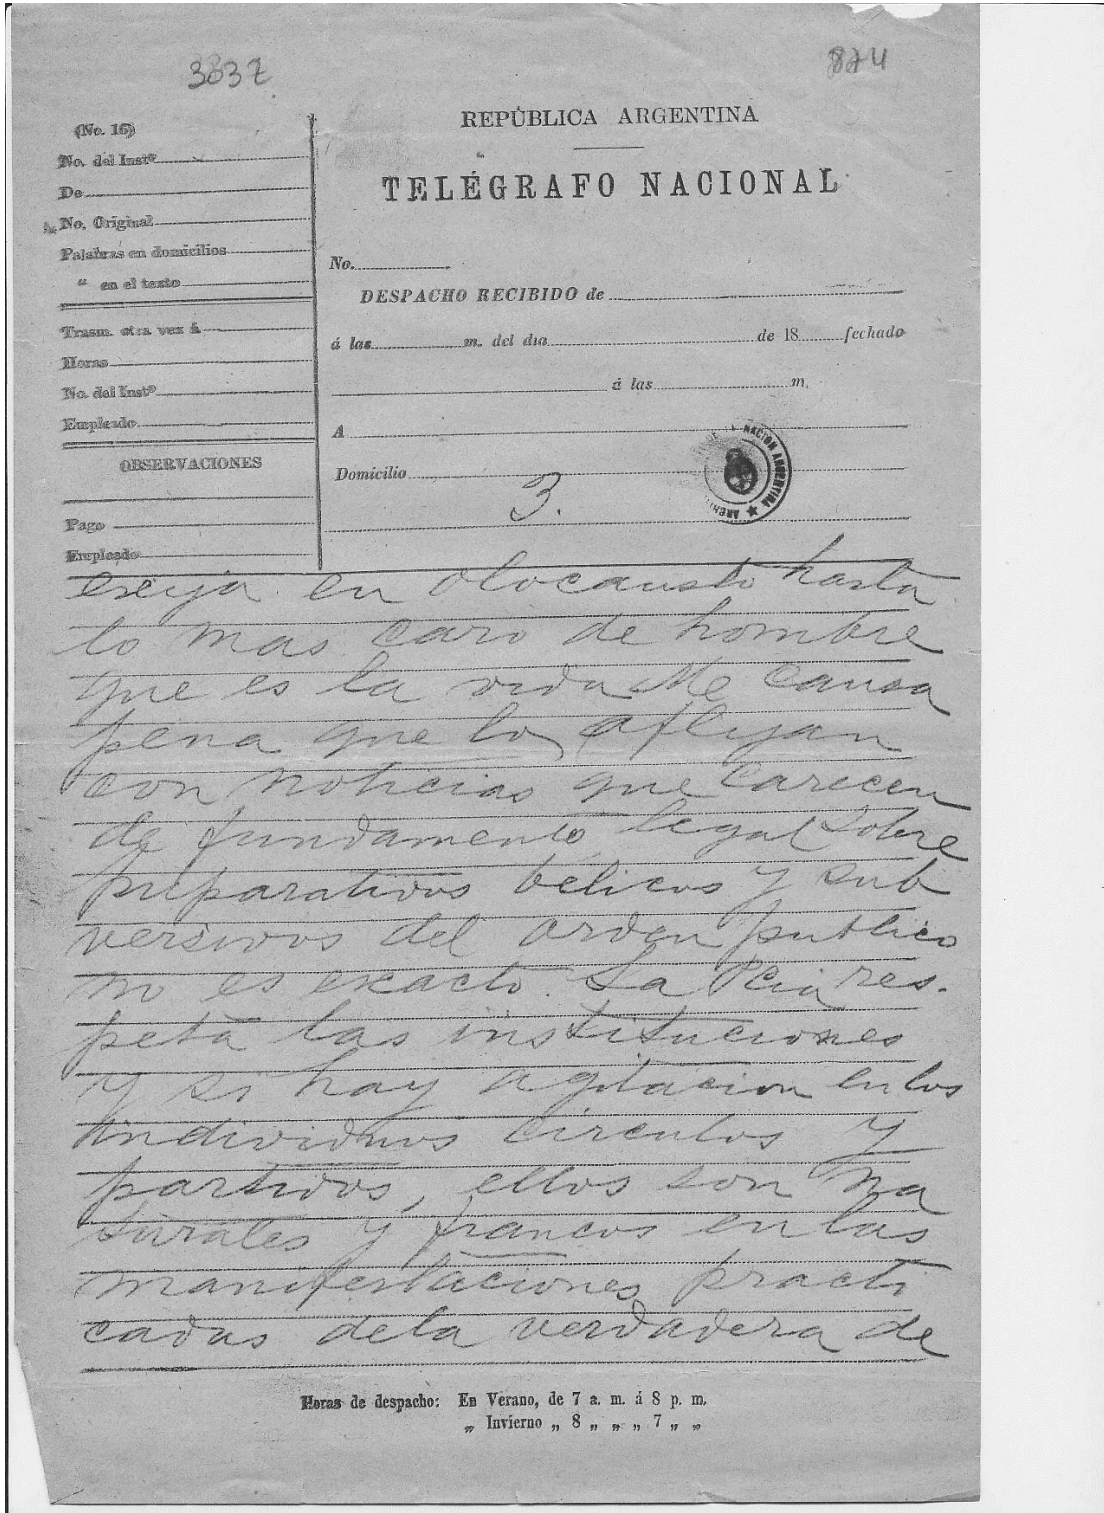 3837
874
(No. 16)
No. del Instº
De
No. Original
Palabras en domicilios
" en el texto
Trasm. otra vez á
Horas
No. del Instº
Empleado
OBSERVACIONES
Pago
Empleado
REPÚBLICA ARGENTINA
TELÉGRAFO NACIONAL
No.
DESPACHO RECIBIDO de
á las m. del dia de 18 fechado
á las m.
A
Domicilio
NACION ARGENTINA
3.
exija en olocausto hasta
lo mas caro de hombre
que es la vida Me causa
pena que lo aflijan
con noticias que carecen
de fundamento legal sobre
preparativos bélicos y sub
versivos del orden publico
no es exacto. La Pcia res-
peta las instituciones
y si hay agitacion en los
individuos circulos y
partidos, ellos son na
turales y francos en las
manifestaciones practi
cadas de la verdadera de
Horas de despacho: En Verano, de 7 a. m. á 8 p. m.
„ Invierno „ 8 „ „ „ 7 „ „